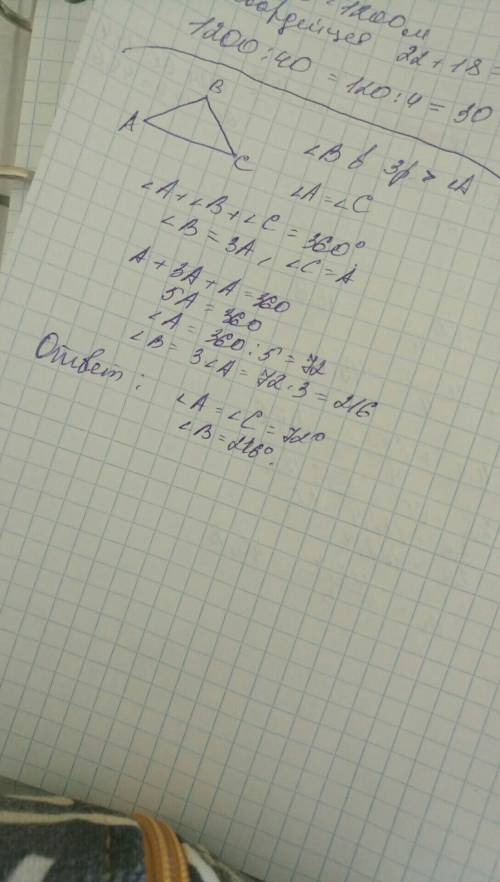 1200 м
22 + 18 =
1200 : 40 = 120 : 4 = 30
B
A
C
∠B в 3р > ∠A
∠A = ∠C
∠A + ∠B + ∠C = 360°
∠B = 3A, ∠C = A
A + 3A + A = 360
5A = 360
∠A = 360 : 5 = 72
∠B = 3∠A = 72 · 3 = 216
Ответ:
∠A = ∠C = 72°
∠B = 216°.